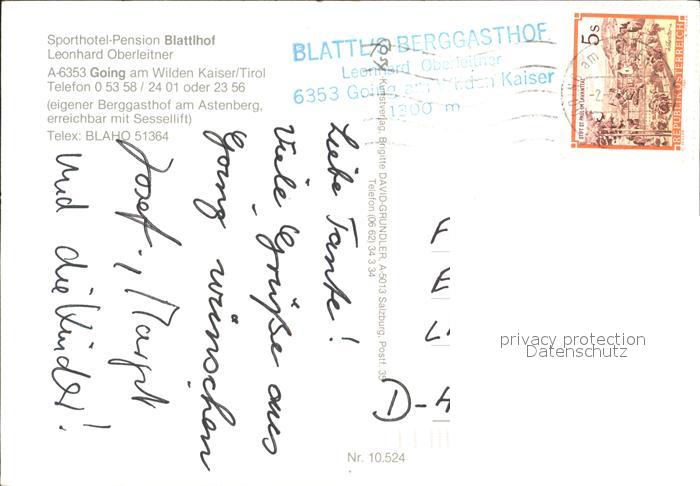 Sporthotel-Pension Blattlhof
Leonhard Oberleitner
A-6353 Going am Wilden Kaiser/Tirol
Telefon 0 53 58 / 24 01 oder 23 56
(eigener Berggasthof am Astenberg,
erreichbar mit Sessellift)
Telex: BLAHO 51364
BLATTL'S BERGGASTHOF
Leonhard Oberleitner
6353 Going am Wilden Kaiser
1300 m
5s
REPUBLIK ÖSTERREICH
Liebe Tante!
Viele Grüße aus
Going wünschen
Josef, Margit
und die Kinder!
Kunstverlag, Brigitte DAVID-GRUNDLER, A-5013 Salzburg, Postf. 35
Telefon (06 62) 34 3 34
D-
Nr. 10.524
privacy protection
Datenschutz